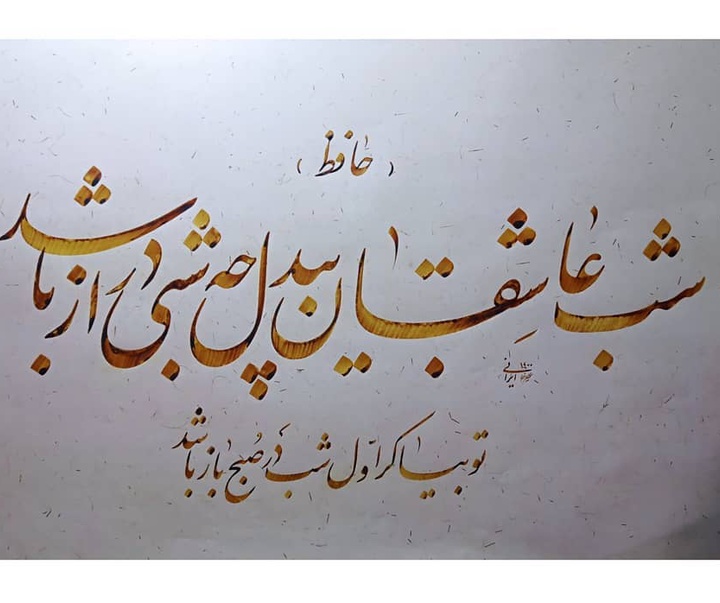 (حافظ)
شب عاشقان بیدل چه شبی دراز باشد
ایرانی ۱۴۰۰
تو بیا کز اول شب در صبح باز باشد